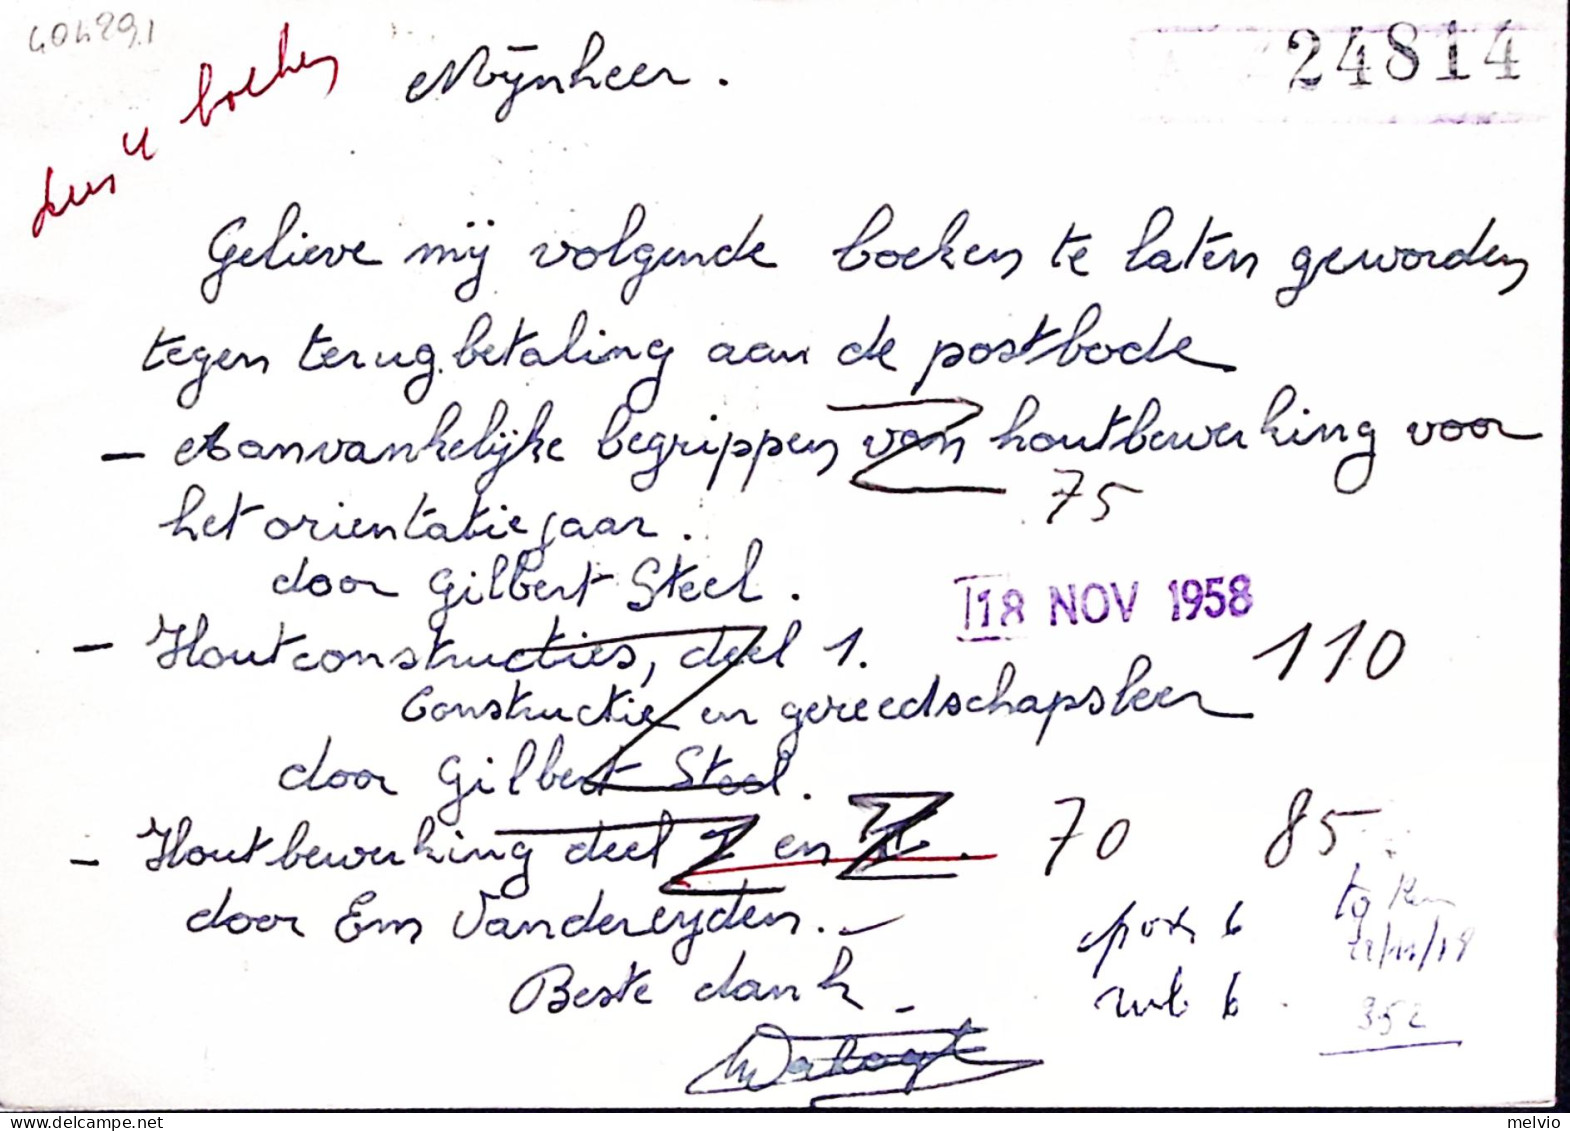 404291
24814
4 boeken
Mijnheer.
Gelieve mij volgende boeken te laten geworden
tegen terugbetaling aan de postbode
- Aanvankelijke begrippen van houtbewerking voor
75
het orientatiejaar.
door Gilbert Steel.
18 NOV 1958
- Houtconstructies, deel 1.
110
Constructie en gereedschapsleer
door Gilbert Steel.
- Houtbewerking deel I en II.
70 85
door Em Vandereyden.
port 6
Beste dank
rub 6
352
melvio